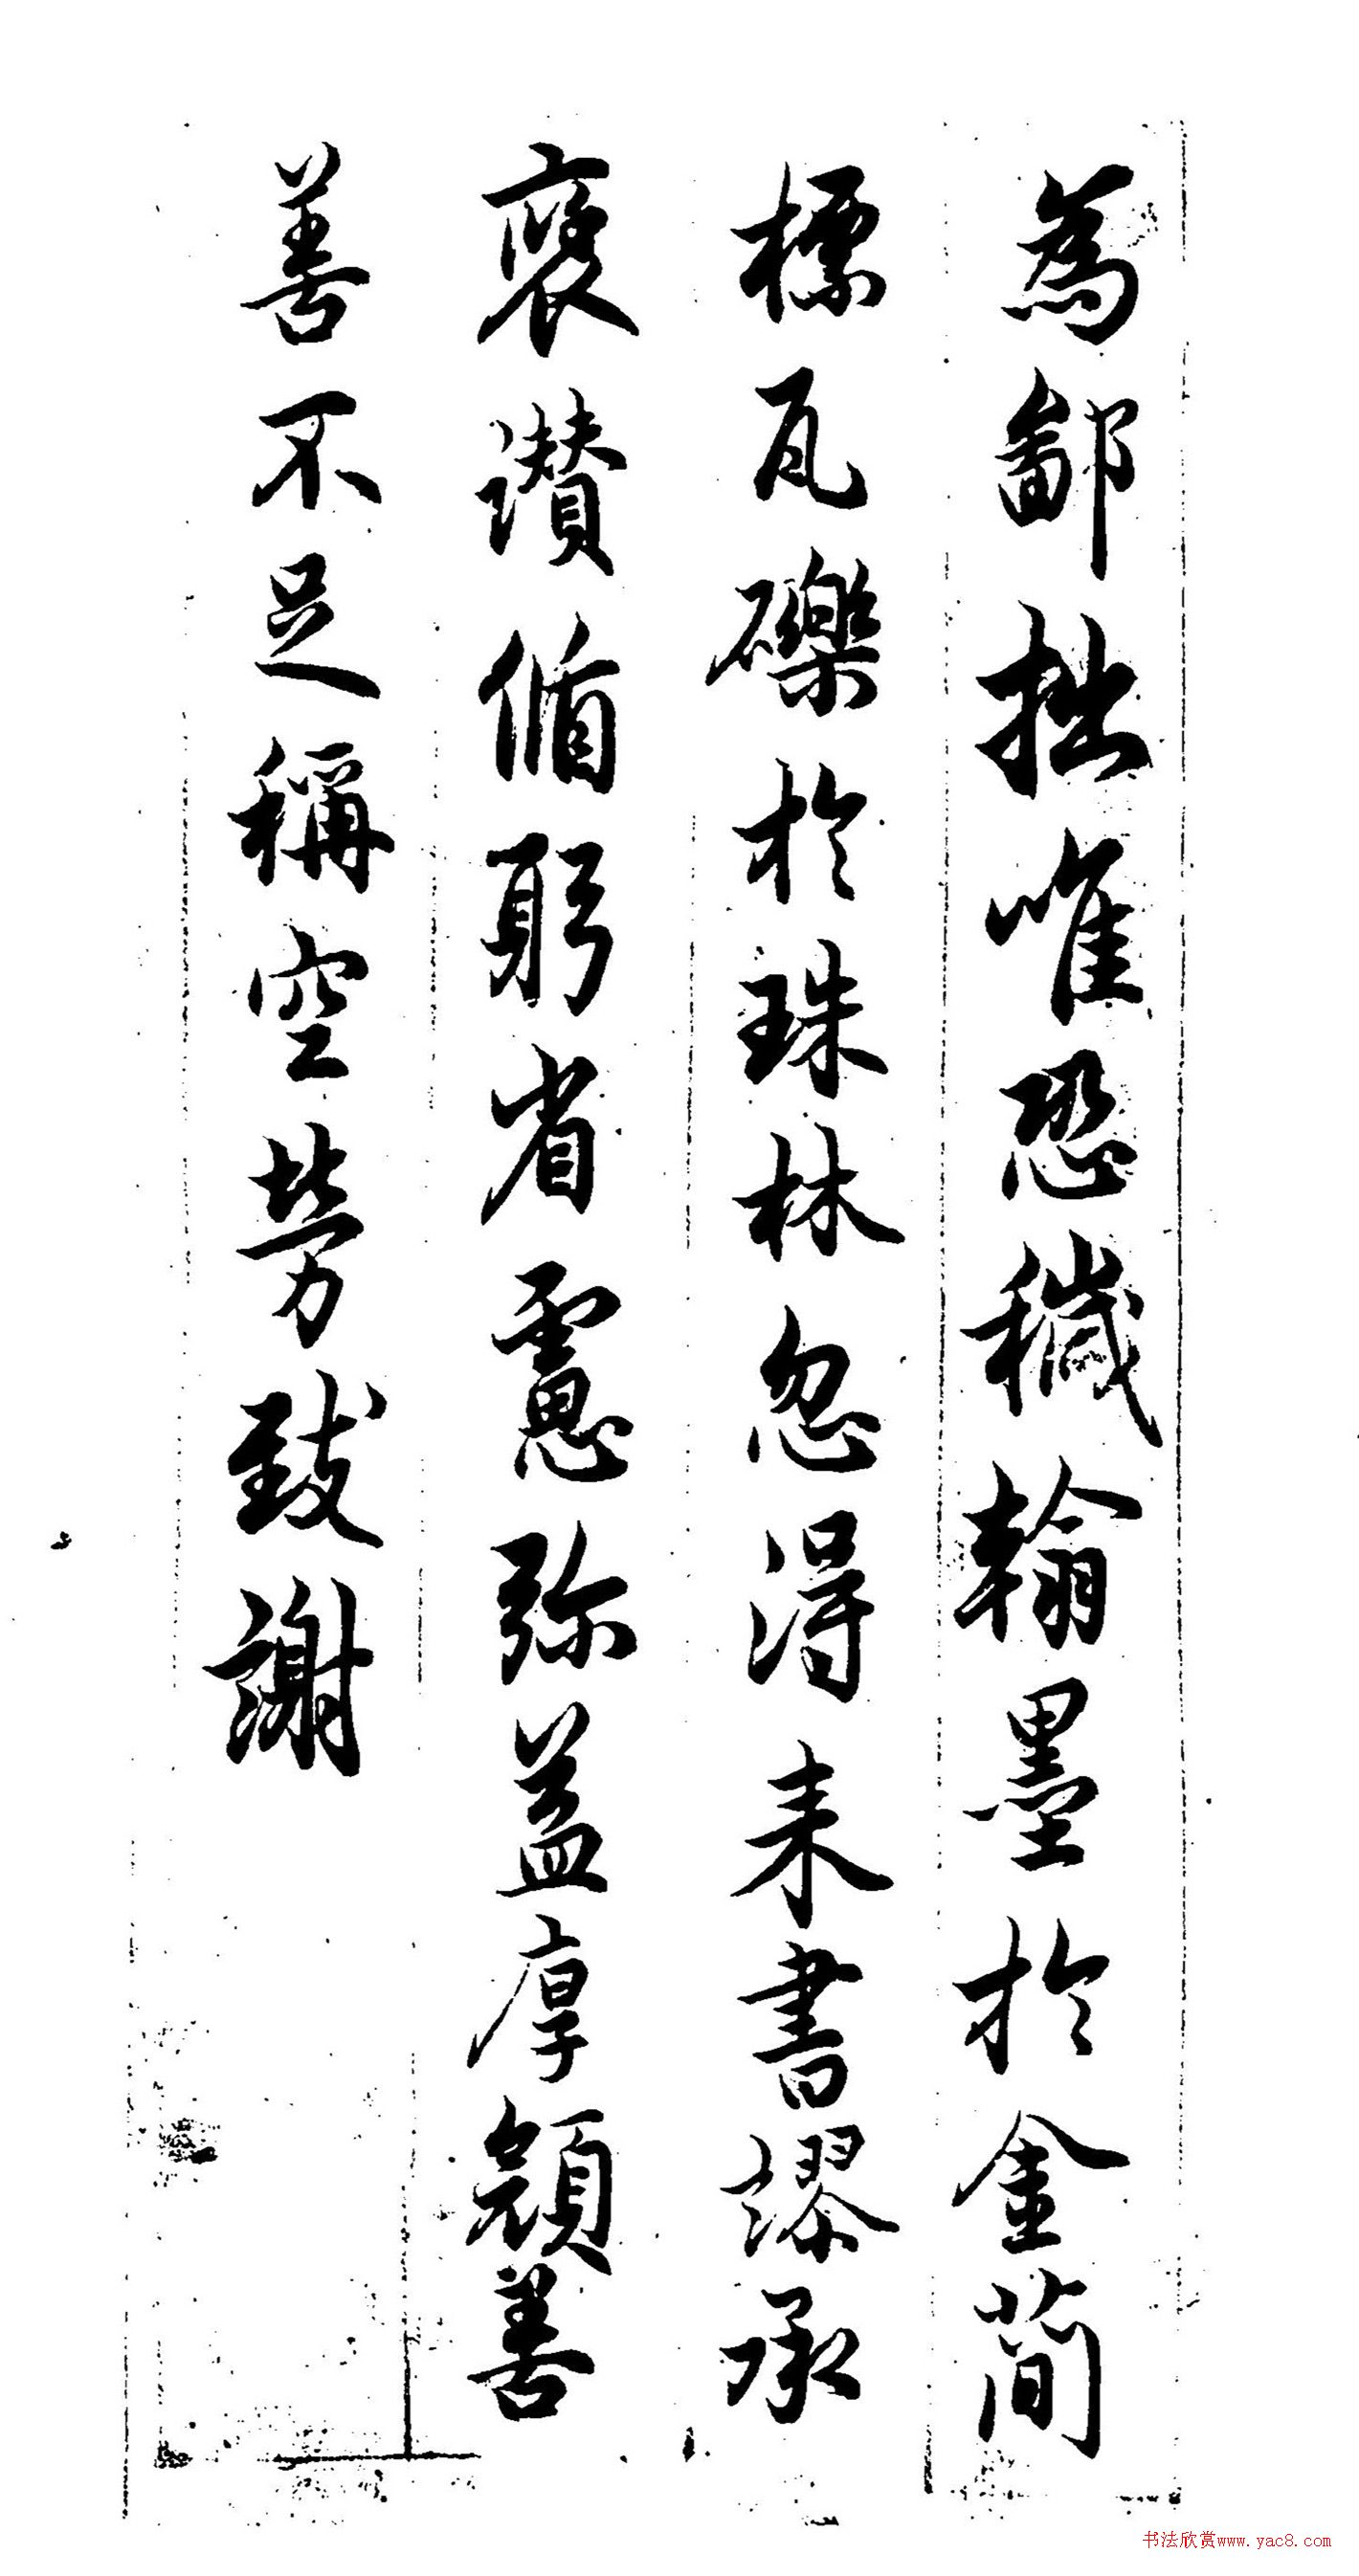 為鄙拙唯恐穢翰墨於金簡
標瓦礫於珠林忽得来書謬承
褒讚循躬省慮弥益厚顔善
善不足稱空勞致謝
书法欣赏www.yac8.com